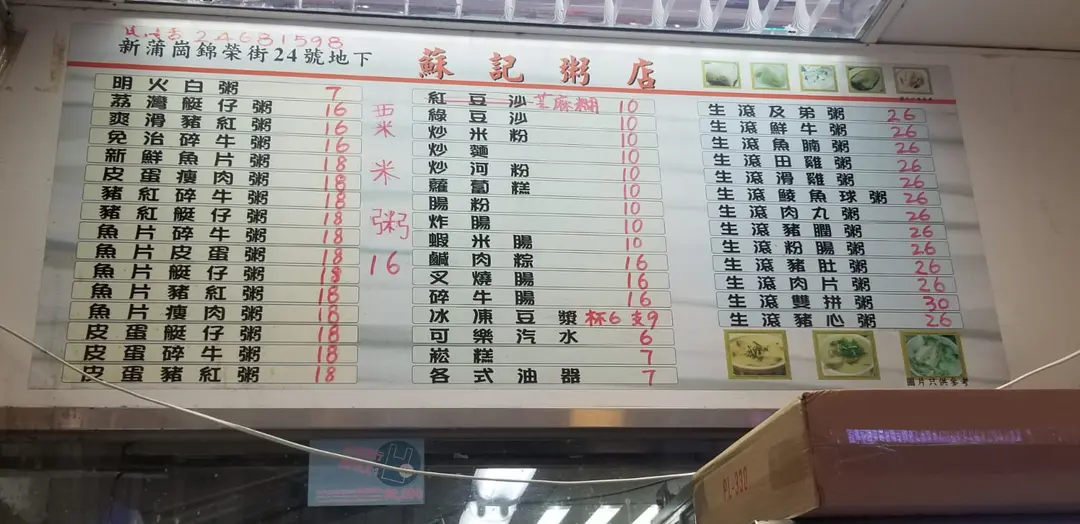 24681598
新蒲崗錦榮街24號地下
蘇記粥店
明火白粥 7
荔灣艇仔粥 16
爽滑豬紅粥 16
免治碎牛粥 16
新鮮魚片粥 18
皮蛋瘦肉粥 18
豬紅碎牛粥 18
豬紅艇仔粥 18
魚片碎牛粥 18
魚片皮蛋粥 18
魚片艇仔粥 18
魚片豬紅粥 18
魚片瘦肉粥 18
皮蛋艇仔粥 18
皮蛋碎牛粥 18
皮蛋豬紅粥 18
粟米
米
粥
16
紅豆沙 芝麻糊 10
綠豆沙 10
炒米粉 10
炒麵 10
炒河粉 10
蘿蔔糕 10
腸粉 10
炸腸 10
蝦米腸 10
鹹肉粽 16
叉燒腸 16
碎牛腸 16
冰凍豆漿 杯6 支9
可樂汽水 6
崧糕 7
各式油器 7
生滾及弟粥 26
生滾鮮牛粥 26
生滾魚腩粥 26
生滾田雞粥 26
生滾滑雞粥 26
生滾鯪魚球粥 26
生滾肉丸粥 26
生滾豬膶粥 26
生滾粉腸粥 26
生滾豬肚粥 26
生滾肉片粥 26
生滾雙拼粥 30
生滾豬心粥 26
圖片只供參考
PL-990